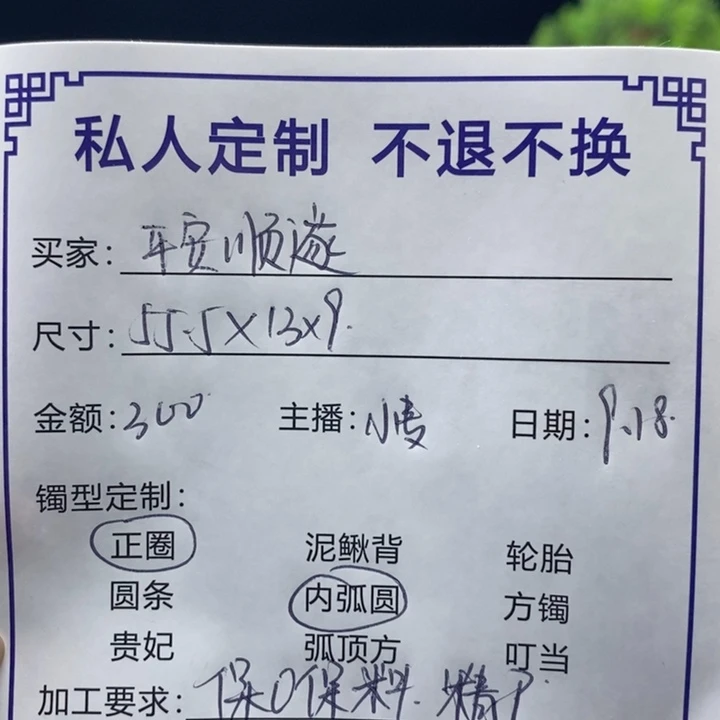 私人定制 不退不换
买家: 平安顺遂
尺寸: 55.5×13×9.
金额: 300 主播: 小麦 日期: 9.18.
镯型定制:
正圈 泥鳅背 轮胎
圆条 内弧圆 方镯
贵妃 弧顶方 叮当
加工要求: 保口保料.精